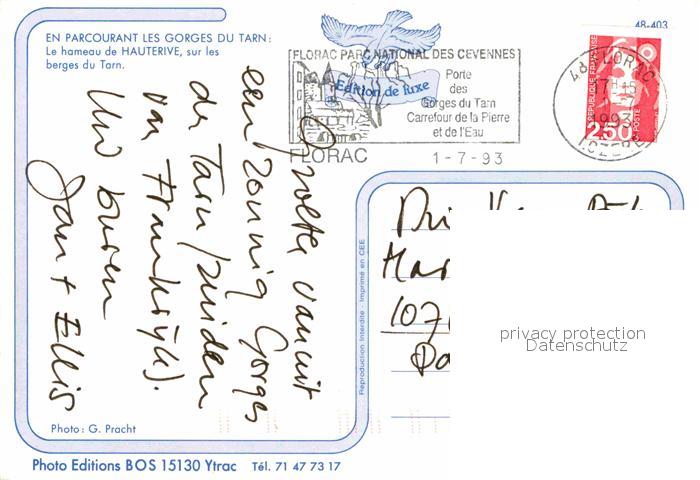 EN PARCOURANT LES GORGES DU TARN :
Le hameau de HAUTERIVE, sur les
berges du Tarn.
48-403
FLORAC PARC NATIONAL DES CEVENNES
Edition de luxe
Porte
des
Gorges du Tarn
Carrefour de la Pierre
et de l'Eau
FLORAC 1-7-93
48 FLORAC
1993
LOZERE
REPUBLIQUE FRANÇAISE
2,50
POSTE
Groeten vanuit
een zonnig Gorges
du Tarn (zuiden
van Frankrijk).
Uw buren
Jan + Ellis
Reproduction Interdite - Imprimé en CEE
107
privacy protection
Datenschutz
Photo : G. Pracht
Photo Editions BOS 15130 Ytrac Tél. 71 47 73 17